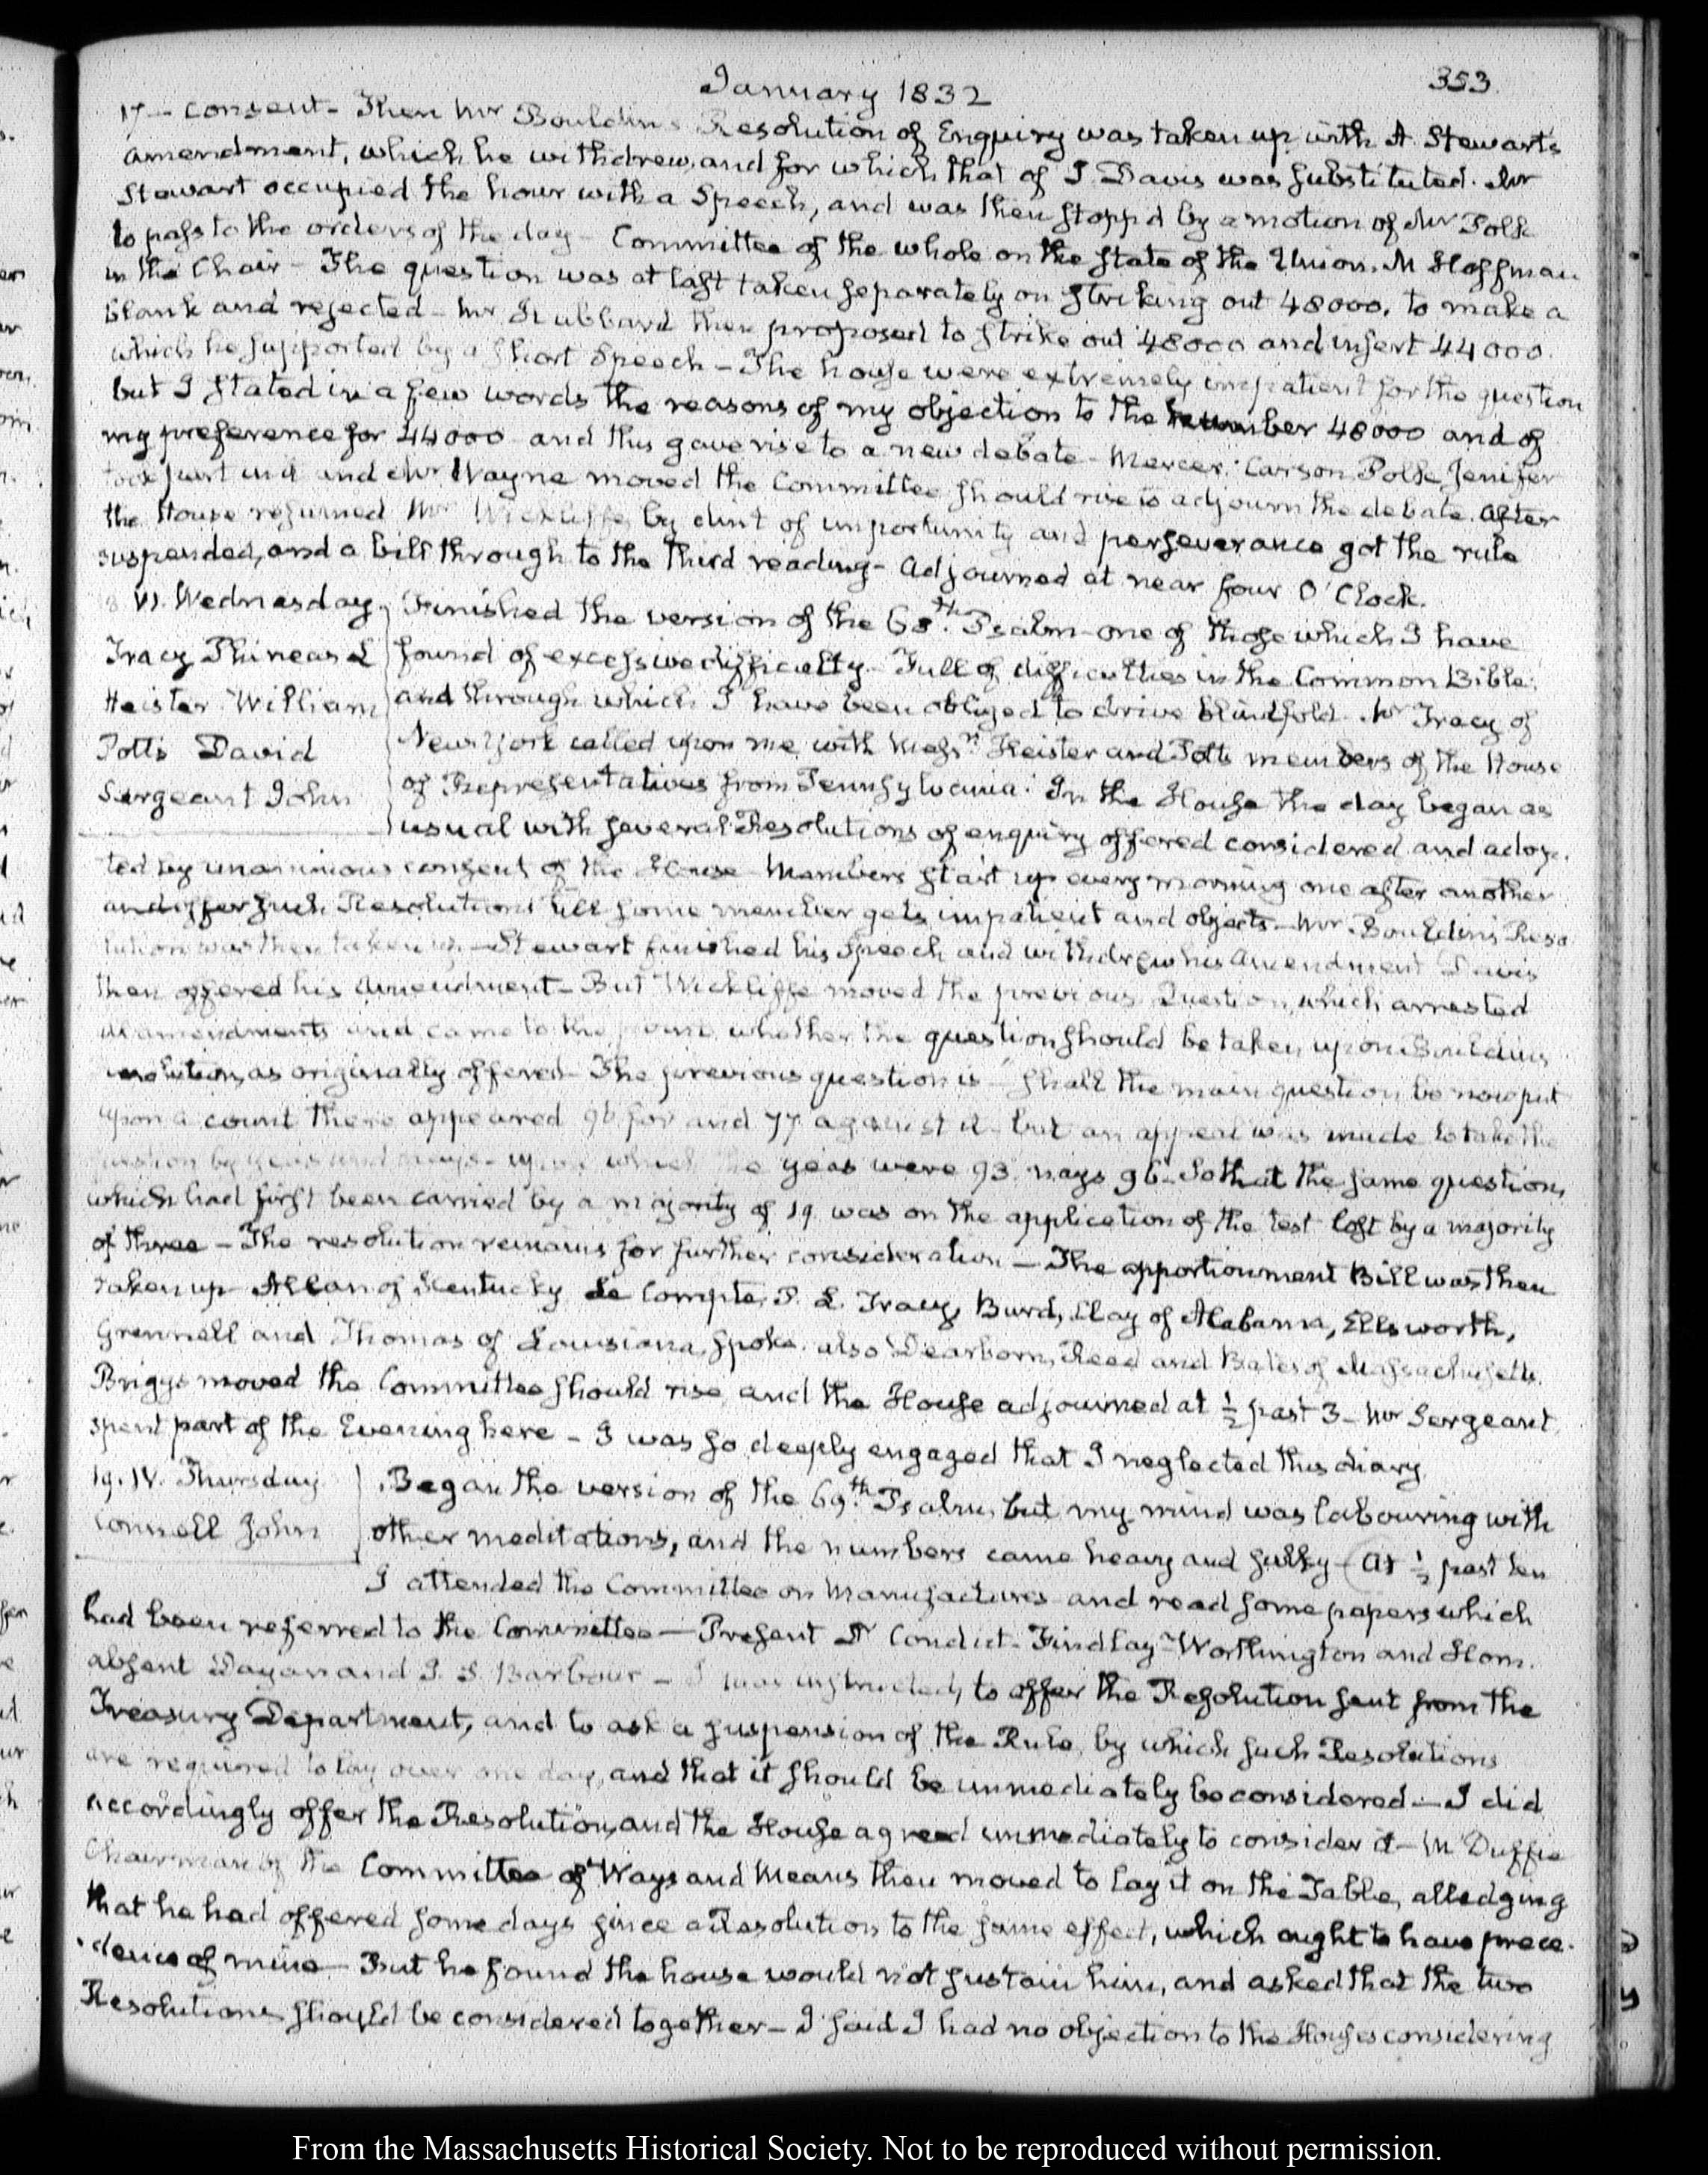 January 1832
353.
17 — consent — Then Mr Bouldin's Resolution of Enquiry was taken up with A. Stewart's
amendment, which he withdrew, and for which that of J Davis was substituted. Mr
Stewart occupied the hour with a Speech, and was then stopp'd by a motion of Mr Polk
to pass to the orders of the day — Committee of the whole on the State of the Union. M Hoffman
in the Chair — The question was at last taken separately on striking out 48000. to make a
blank and rejected — Mr Hubbard then proposed to strike out 48000 and insert 44000.
which he supported by a short Speech — The house were extremely impatient for the question
but I stated in a few words the reasons of my objection to the number 48000 and of
my preference for 44000 and this gave rise to a new debate — Mercer, Carson Polk, Jenifer
took part in it and Mr Wayne moved the Committee should rise to adjourn the debate. After
the House resumed Mr Wickliffe by dint of importunity and perseverance got the rule
suspended, and a bill through to the third reading — Adjourned at near four O'Clock.
18. IV. Wednesday.
Tracy Phineas L
Heister William
Potts David
Sergeant John
Finished the version of the 68th. Psalm — one of those which I have
found of excessive difficulty — Full of difficulties in the Common Bible,
and through which I have been obliged to drive blindfold. Mr Tracy of
New York called upon me with Messrs Heister and Potts members of the House
of Representatives from Pennsylvania. In the House the day began as
usual with several Resolutions of enquiry offered considered and adop-
ted by unanimous consent of the House — Members start up every morning one after another
and offer such Resolutions till some member gets impatient and objects — Mr Bouldin's Reso-
lution was then taken up — Stewart finished his Speech and withdrew his Amendment Davis
then offered his Amendment — But Wickliffe moved the previous Question, which arrested
all amendments and came to the point whether the question should be taken upon Bouldin's
resolution, as originally offered — The previous question is — shall the main question be now put
upon a count there appeared 96 for and 77 against it — but an appeal was made to take the
question by yeas and nays — upon which the yeas were 93. nays 96 — So that the same question,
which had first been carried by a majority of 19. was on the application of the test lost by a majority
of three — The resolution remains for further consideration — The apportionment Bill was then
taken up — Allan of Kentucky Le Compte, P. L. Tracy, Burd, Clay of Alabama, Ellsworth,
Grennell and Thomas of Louisiana, spoke. also Dearborn, Reed and Bates of Massachusetts.
Briggs moved the Committee should rise and the House adjourned at ½ past 3 — Mr Sergeant
spent part of the Evening here — I was so deeply engaged that I neglected this diary
19. IV. Thursday
Connell John
Began the version of the 69th. Psalm, but my mind was labouring with
other meditations, and the numbers came heavy and sulky — At ½ past ten
I attended the Committee on Manufactures and read some papers which
had been referred to the Committee — Present Dr Condict — Findlay — Worthington and Horn.
absent Dayan and J. S. Barbour — I was instructed, to offer the Resolution sent from the
Treasury Department, and to ask a suspension of the Rule, by which such Resolutions
are required to lay over one day, and that it should be immediately be considered — I did
accordingly offer the Resolution, and the House agreed immediately to consider it — McDuffie
Chairman of the Committee of Ways and Means then moved to lay it on the Table, alledging
that he had offered some days since a Resolution to the same effect, which ought to have prece-
dence of mine — But he found the house would not sustain him, and asked that the two
Resolutions should be considered together — I said I had no objection to the House's considering
From the Massachusetts Historical Society. Not to be reproduced without permission.